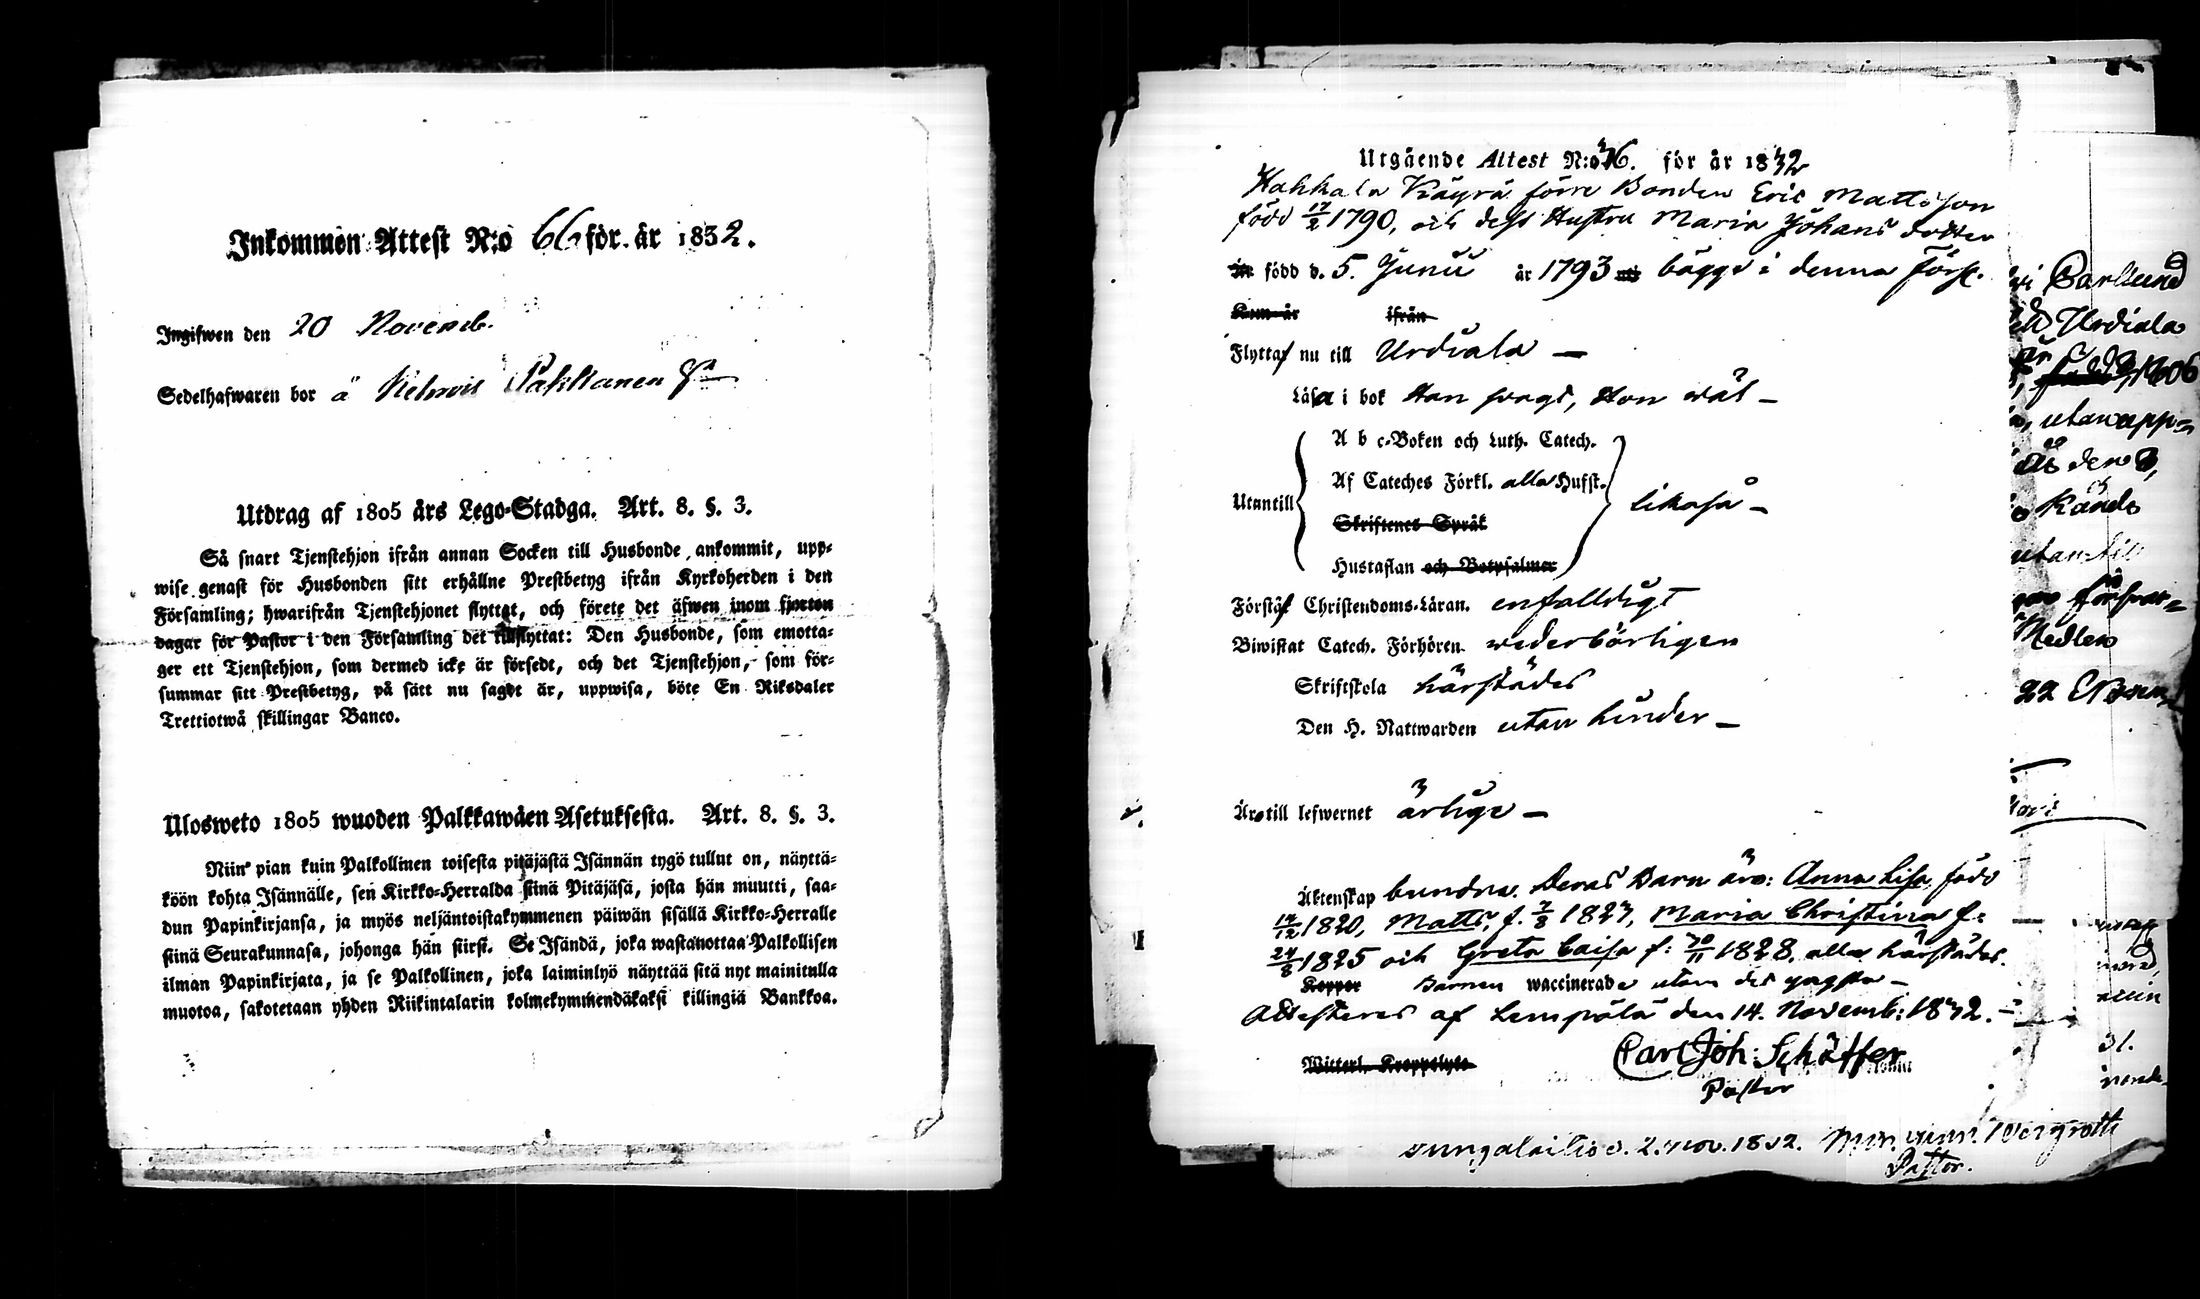 Inkommen Attest N:o 66 för år 1832.
Ingifwen den 20 Novemb.
Sedelhafwaren bor å
Utdrag af 1805 års Lego-Stadga. Art. 8. §. 3.
Så snart Tjenstehjon ifrån annan Socken till Husbonde ankommit, upp-
wise genast för Husbonden sitt erhållne Prestbetyg ifrån Kyrkoherden i den
Församling; hwarifrån Tjenstehjonet flyttat, och förete det äfwen inom fjorton
dagar för Pastor i den Församling det tillflyttat: Den Husbonde, som emotta-
ger ett Tjenstehjon, som dermed icke är försedt, och det Tjenstehjon, som för-
summar sitt Prestbetyg, på sätt nu sagdt är, uppwisa, böte En Riksdaler
Trettiotwå skillingar Banco.
Ulosweto 1805 wuoden Palkkawäen Asetuksesta. Art. 8. §. 3.
Niin pian kuin Palkollinen toisesta pitäjästä Isännän tygö tullut on, näyttä-
köön kohta Isännälle, sen Kirkko-Herralda siinä Pitäjäsä, josta hän muutti, saa-
dun Papinkirjansa, ja myös neljäntoistakymmenen päiwän sisällä Kirkko-Herralle
siinä Seurakunnasa, johonga hän siirsi. Se Isändä, joka wastanottaa Palkollisen
ilman Papinkirjata, ja se Palkollinen, joka laiminlyö näyttää sitä nyt mainitulla
muotoa, sakotetaan yhden Riikintalarin kolmekymmendäkaksi killingiä Bankkoa.
Utgående Attest N:o 36. för år 1832
Hakkala Käyrä förre Bonden Eric Mattsson
född 17/2 1790, och dess Hustru Maria Johans dotter
född d. 5. Junii år 1793 bägge i denna Förs.
Kom år ifrån
Flytta nu till Urdiala —
Läsa i bok Han swagt, Hon wäl —
A b c-Boken och Luth. Catech.
Af Cateches Förkl. alla Hufst.
Utantill likaså —
Skriftenes Språk
Hustaflan och Botpsalmer
Förstå Christendoms-Läran. enfalldigt
Biwistat Catech. Förhören. wederbörligen
Skriftskola härstädes
Den H. Nattwarden utan hinder —
Äro till lefwernet ärlige —
Äktenskap bundna. Deras Barn äro: Anna Lisa, född
14/12 1820, Matts, f. 7/8 1823, Maria Christina f:
24/8 1825 och Greta Caisa f: 30/11 1828, alla härstädes.
Koppor Barnen waccinerade utom den yngsta —
Attesteras af Lempälä den 14. Novemb: 1832. —
Wittert. Kroppslyte
Carl Joh. Schäffer
Pastor
Carlund
Urdiala
utan upp-
den 3,
Kände
utan till
försvar-
Medlem
22 Novem
31.
2. nov. 1832.
Pastor.